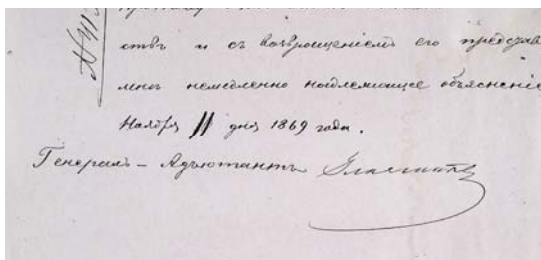 ствѣ и съ возвращеніемъ его представ
мнѣ немедленно надлежащее объясненіе
Ноября 11 дня 1869 года.
Генералъ-Адъютантъ